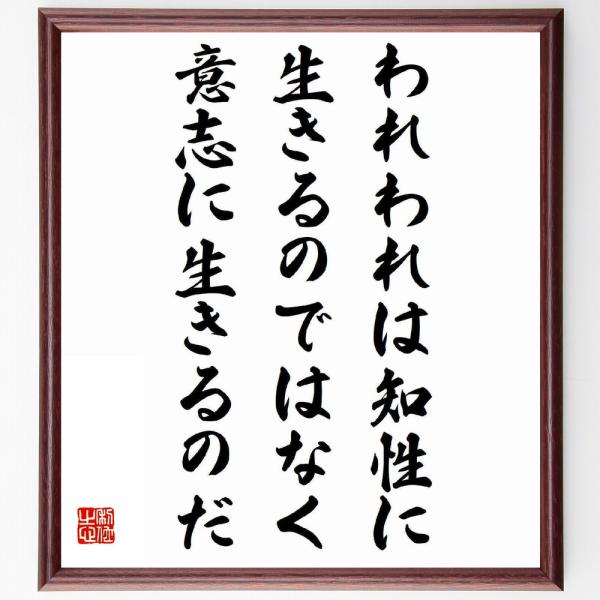 われわれは知性に
生きるのではなく
意志に生きるのだ